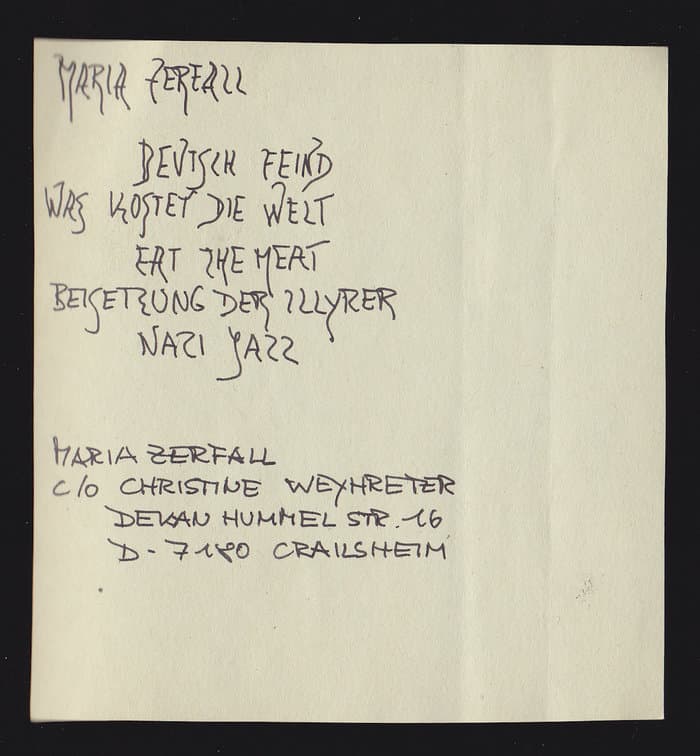 MARIA ZERFALL
DEUTSCH FEIND
WAS KOSTET DIE WELT
EAT THE MEAT
BEISETZUNG DER ILLYRER
NAZI JAZZ
MARIA ZERFALL
C/O CHRISTINE WEYHRETER
DEKAN HUMMEL STR. 16
D-7180 CRAILSHEIM